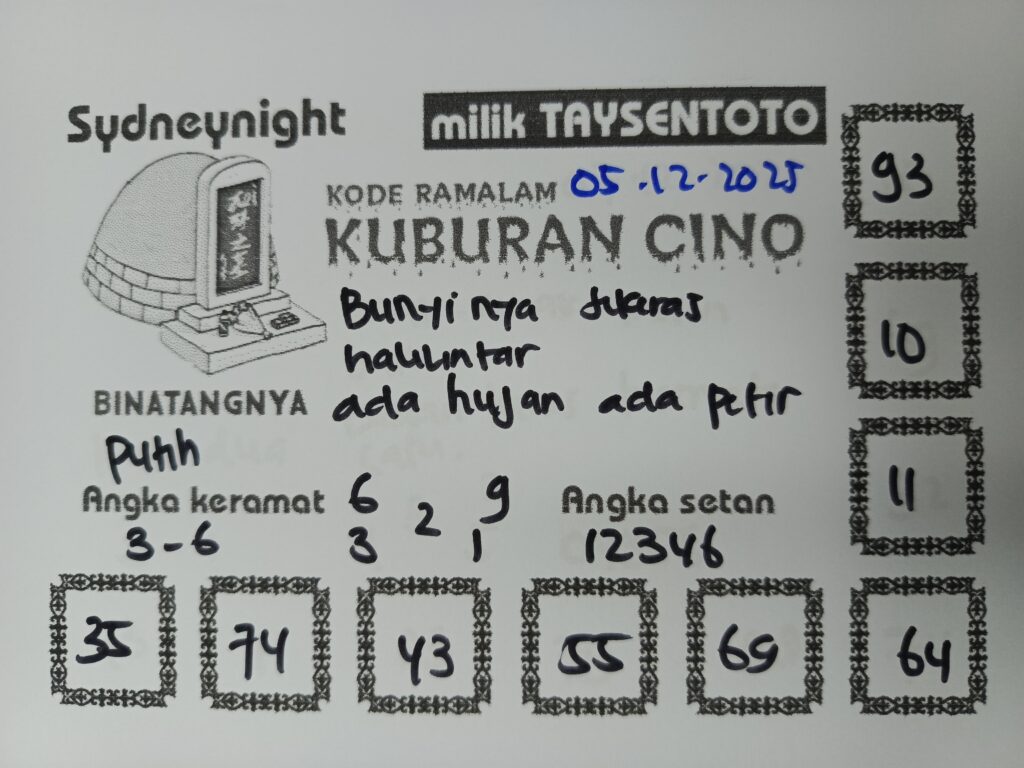 Sydneynight
milik TAYSENTOTO
KODE RAMALAM 05.12.2025
KUBURAN CINO
Bunyinya sekeras
halilintar
BINATANGNYA ada hujan ada petir
putih
Angka keramat 6 2 9 Angka setan
3-6 3 1 12346
93
10
11
35 74 43 55 69 64